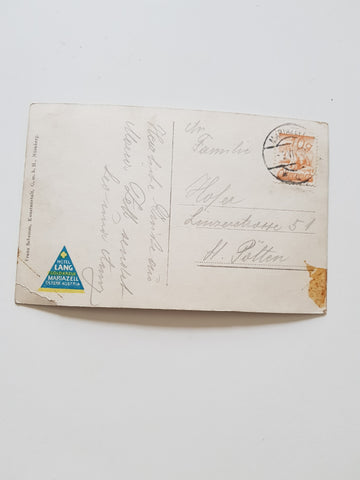 Franz Schemm, Kunstanstalt, G. m. b. H., Nürnberg.
Herzliche Grüße aus
Maria Zell sendet
HOTEL
LANG
GOLD.KREUZ
MARIAZELL
ÖSTERR. AUSTRIA
An
Familie
Hofer
Linzerstrasse 51
St. Pölten
MARIAZELL